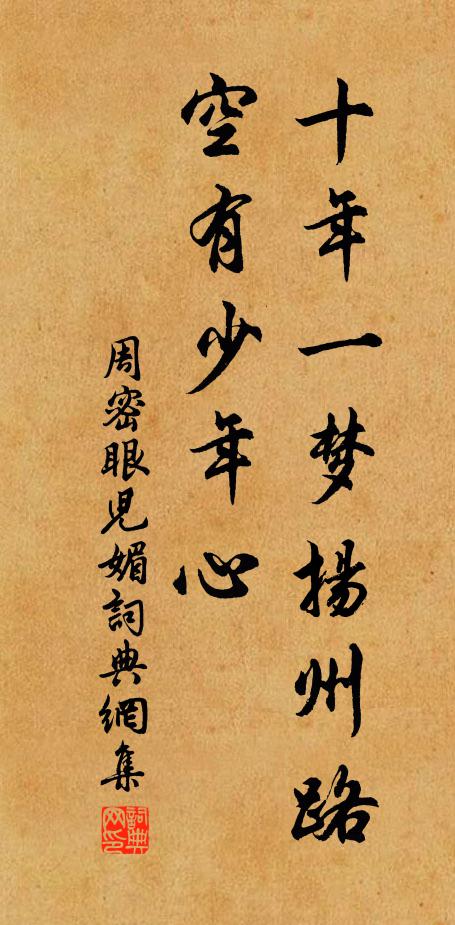 十年一梦揚州路
空有少年心
周密眼児媚詞典網集
詞典网印